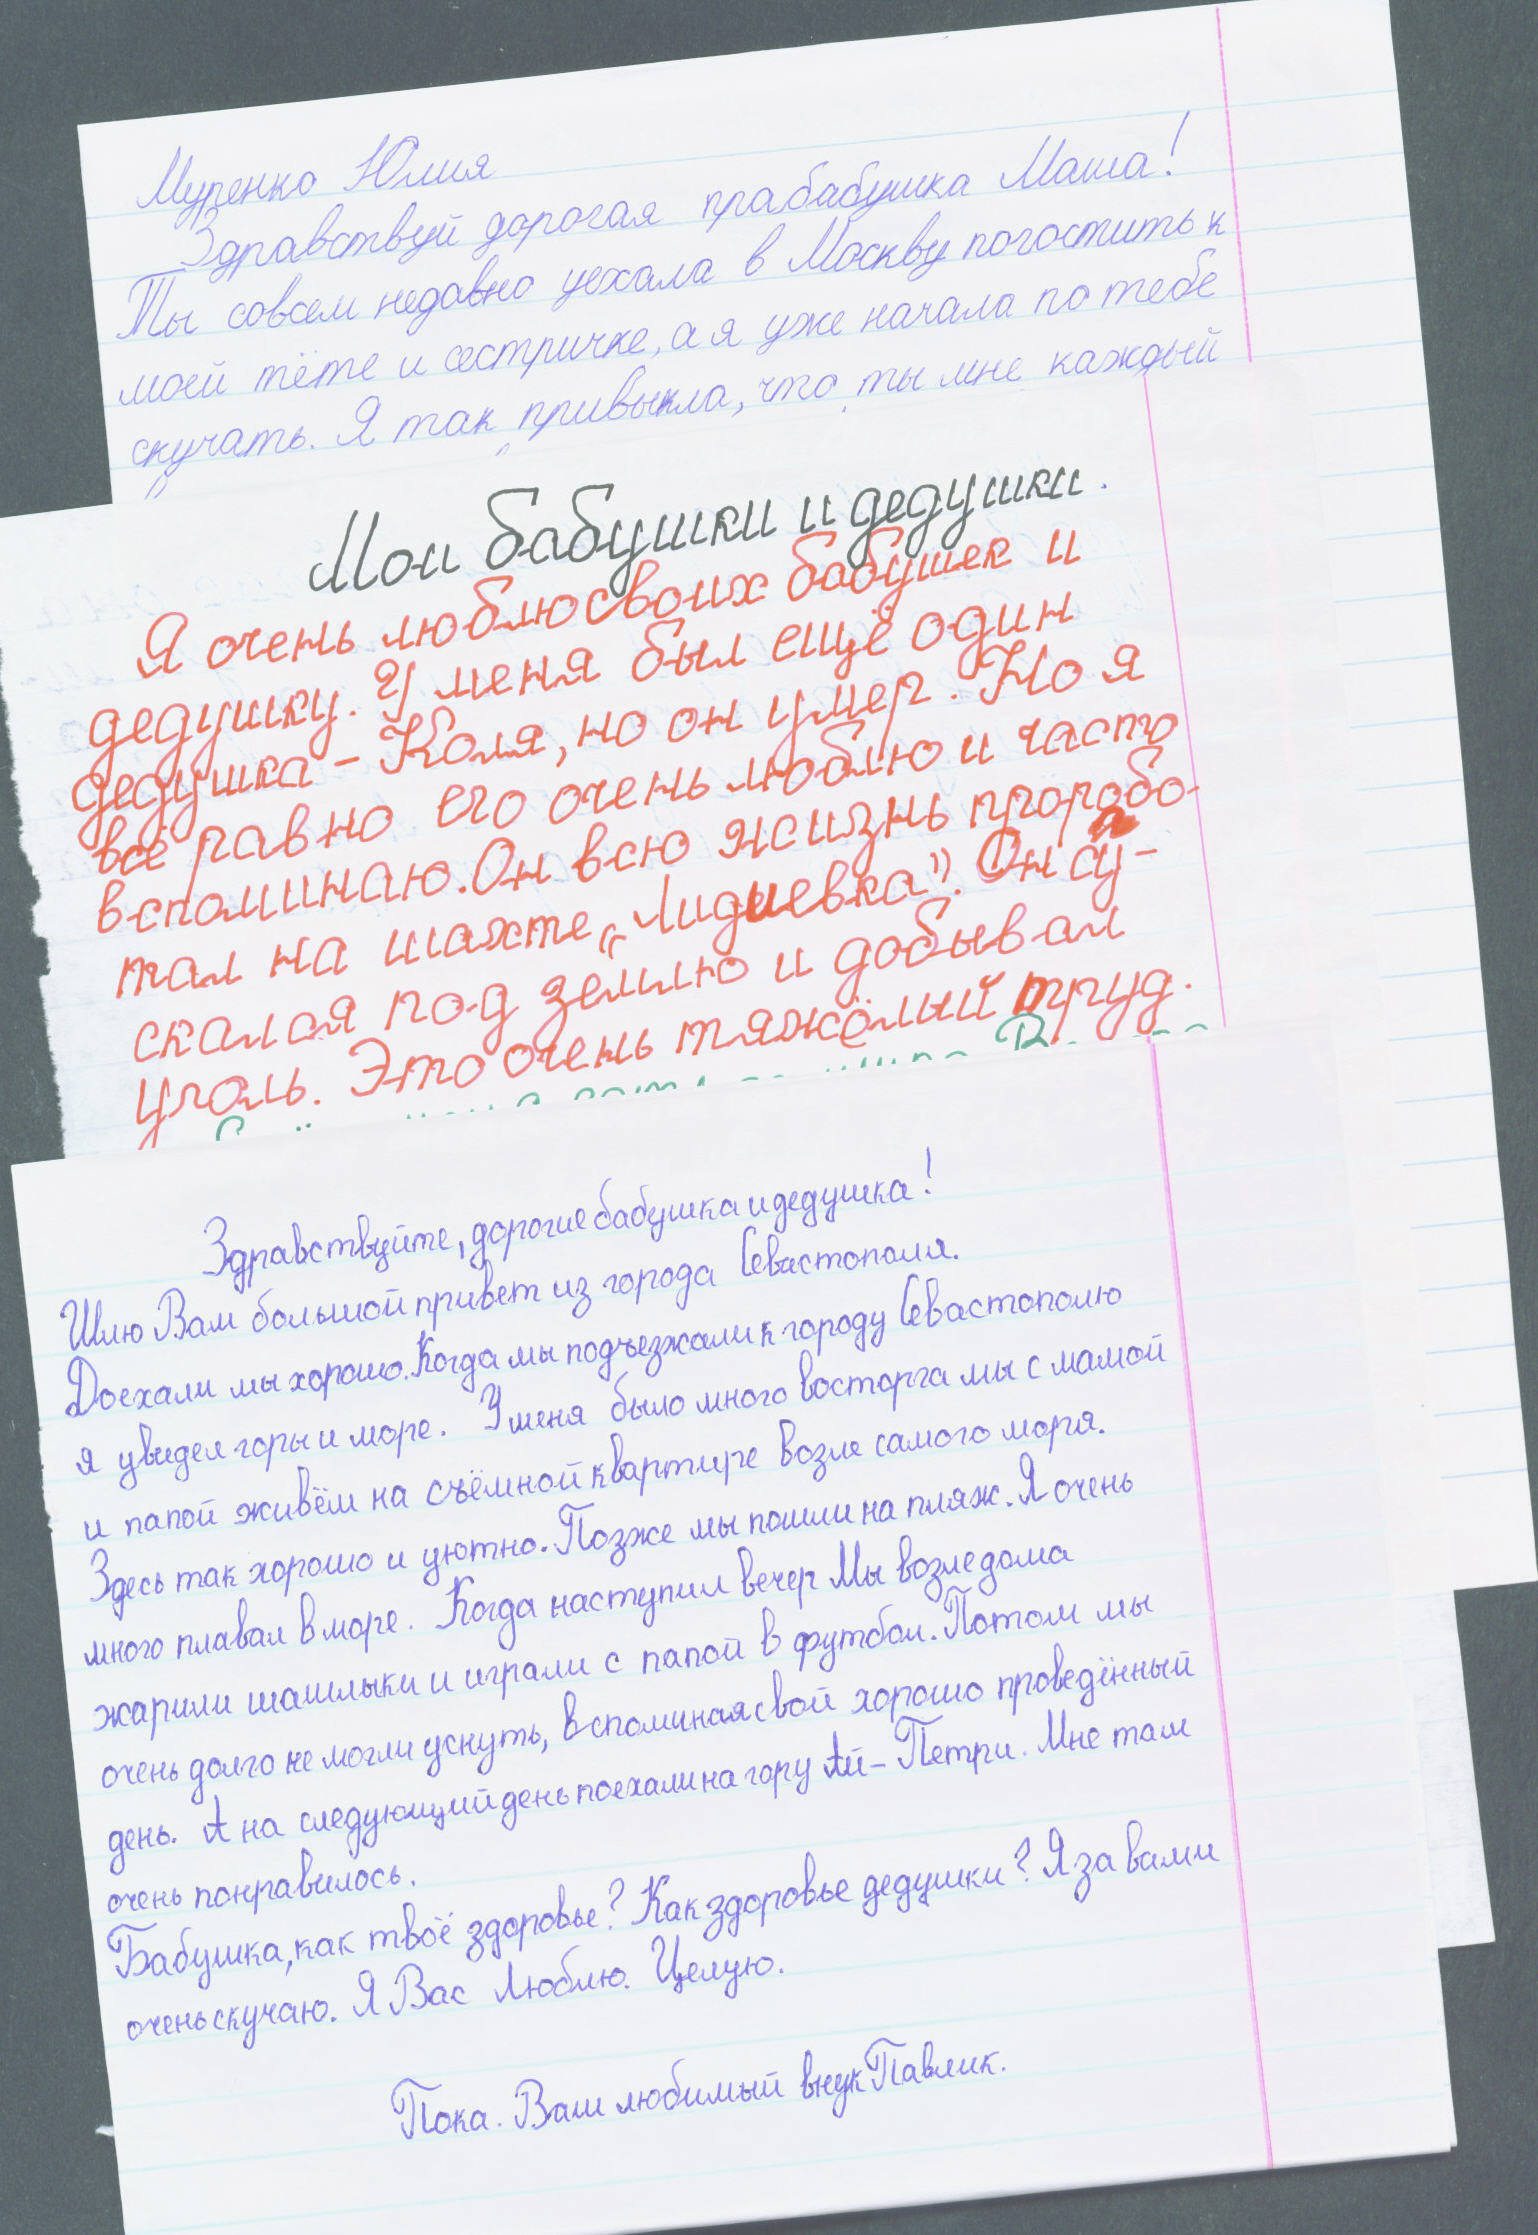 Муренко Юлия
Здравствуй дорогая прабабушка Маша!
Ты совсем недавно уехала в Москву погостить к
моей тёте и сестричке, а я уже начала по тебе
скучать. Я так привыкла, что ты мне каждый
Мои бабушки и дедушки.
Я очень люблю своих бабушек и
дедушку. У меня был ещё один
дедушка - Коля, но он умер. Но я
всё равно его очень люблю и часто
вспоминаю. Он всю жизнь прорабо-
тал на шахте „Лидиевка". Он спу-
скался под землю и добывал
уголь. Это очень тяжёлый труд.
Здравствуйте, дорогие бабушка и дедушка!
Шлю Вам большой привет из города Севастополя.
Доехали мы хорошо. Когда мы подъезжали к городу Севастополю
я увидел горы и море. У меня было много восторга мы с мамой
и папой живём на съёмной квартире возле самого моря.
Здесь так хорошо и уютно. Позже мы пошли на пляж. Я очень
много плавал в море. Когда наступил вечер Мы возле дома
жарили шашлыки и играли с папой в футбол. Потом мы
очень долго не могли уснуть, вспоминая свой хорошо проведённый
день. А на следующий день поехали на гору Ай-Петри. Мне там
очень понравилось.
Бабушка, как твоё здоровье? Как здоровье дедушки? Я за вами
очень скучаю. Я Вас Люблю. Целую.
Пока. Ваш любимый внук Павлик.